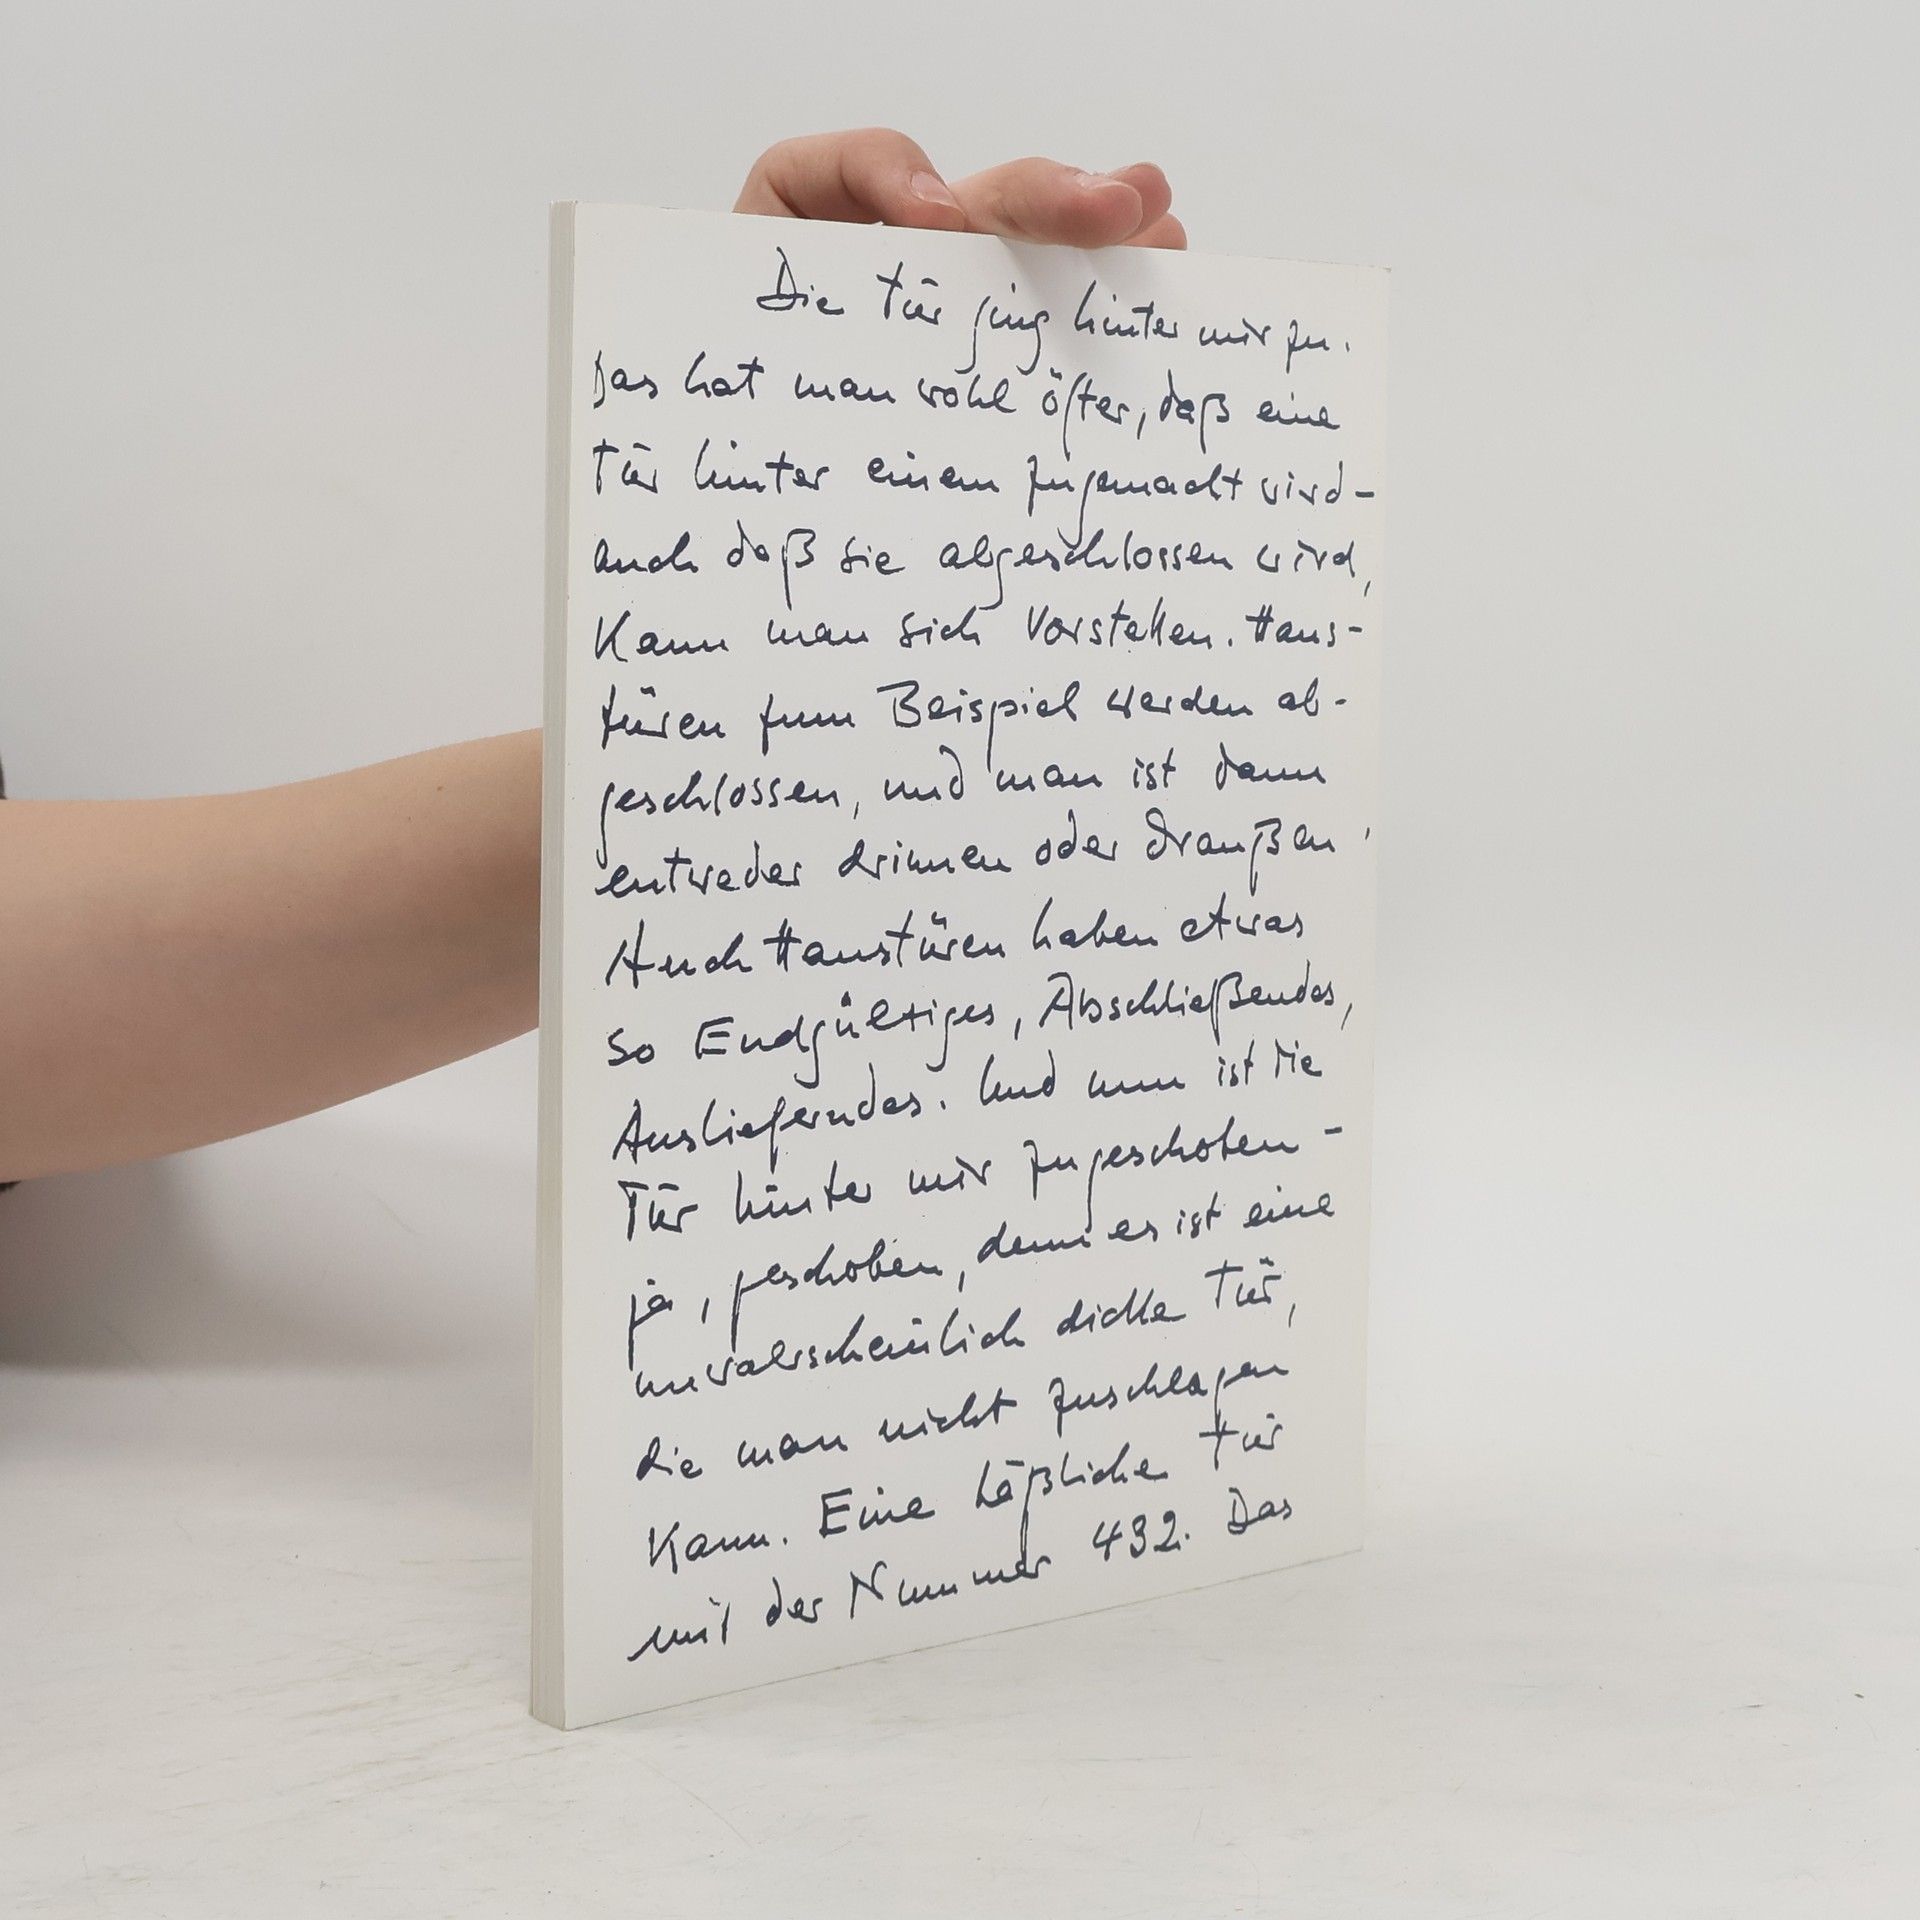 Die Tür ging hinter mir zu.
Das hat man wohl öfter, daß eine
Tür hinter einem zugemacht wird -
auch daß sie abgeschlossen wird,
kann man sich vorstellen. Haus-
türen zum Beispiel werden ab-
geschlossen, und man ist dann
entweder drinnen oder draußen.
Auch Haustüren haben etwas
so Endgültiges, Abschließendes,
Auslieferndes. Und nun ist die
Tür hinter mir zugeschoben -
ja, geschoben, denn es ist eine
unwahrscheinlich dicke Tür,
die man nicht zuschlagen
kann. Eine häßliche Tür
mit der Nummer 432. Das